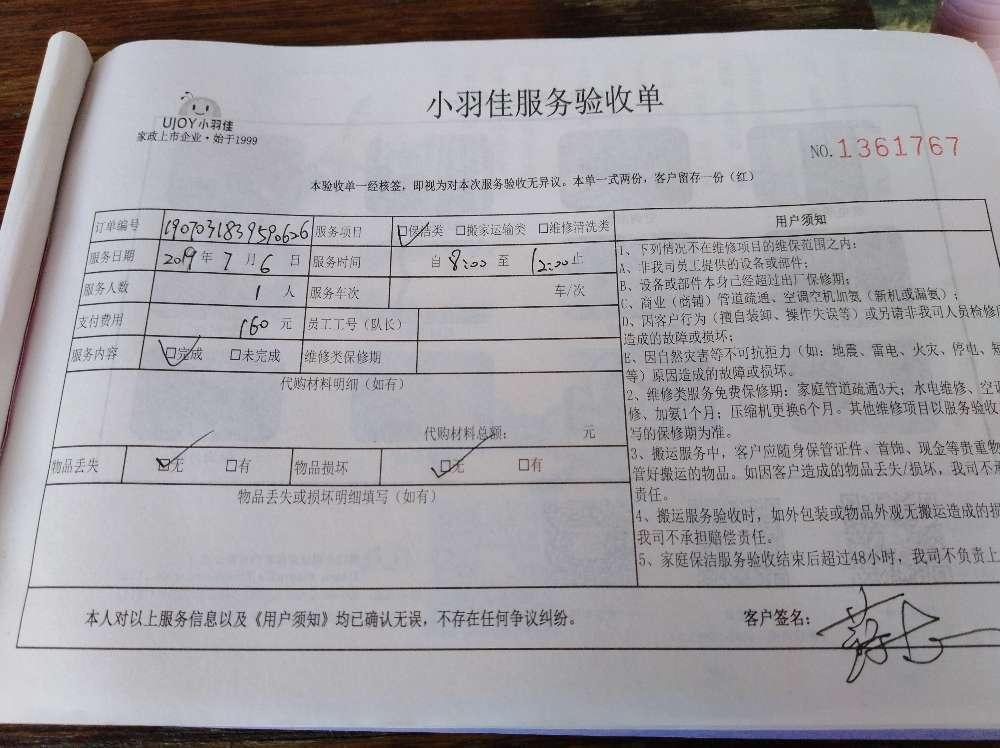 UJOY小羽佳
家政上市企业·始于1999
小羽佳服务验收单
NO.1361767
本验收单一经核签，即视为对本次服务验收无异议。本单一式两份，客户留存一份（红）
订单编号 1907031839590626 服务项目 □保洁类 □搬家运输类 □维修清洗类
服务日期 2019年7月6日 服务时间 自8:00至12:00止
服务人数 1人 服务车次 车/次
支付费用 160元 员工工号（队长）
服务内容 □完成 □未完成 维修类保修期
代购材料明细（如有）
代购材料总额： 元
物品丢失 □无 □有 物品损坏 □无 □有
物品丢失或损坏明细填写（如有）
用户须知
1、下列情况不在维修项目的维保范围之内：
A、非我司员工提供的设备或部件；
B、设备或部件本身已经超过出厂保修期；
C、商业（商铺）管道疏通、空调空机加氨（新机或漏氨）；
D、因客户行为（擅自装卸、操作失误等）或另请非我司人员检修
造成的故障或损坏；
E、因自然灾害等不可抗拒力（如：地震、雷电、火灾、停电、短
等）原因造成的故障或损坏。
2、维修类服务免费保修期：家庭管道疏通3天；水电维修、空调
修、加氨1个月；压缩机更换6个月。其他维修项目以服务验收
写的保修期为准。
3、搬运服务中，客户应随身保管证件、首饰、现金等贵重物
管好搬运的物品。如因客户造成的物品丢失/损坏，我司不承
责任。
4、搬运服务验收时，如外包装或物品外观无搬运造成的损
我司不承担赔偿责任。
5、家庭保洁服务验收结束后超过48小时，我司不负责上
本人对以上服务信息以及《用户须知》均已确认无误，不存在任何争议纠纷。
客户签名：